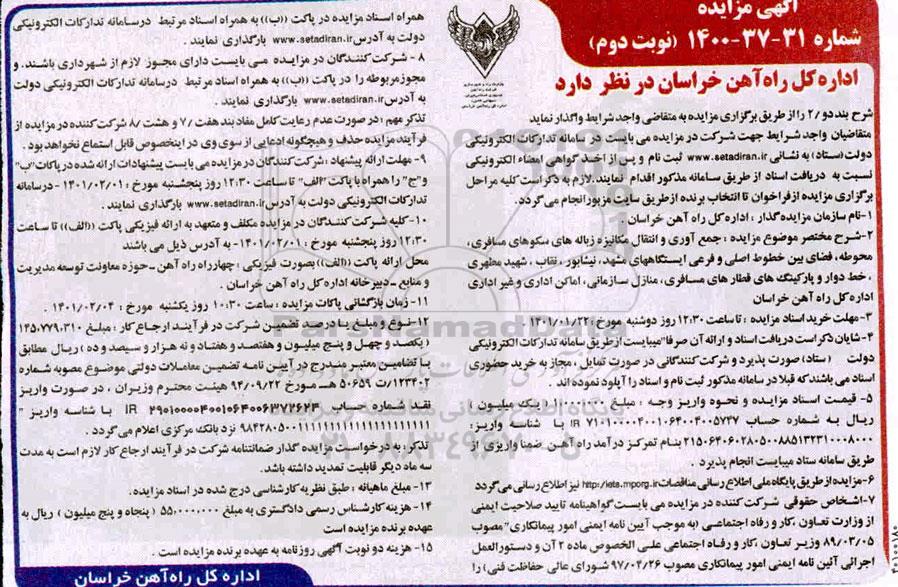 آگهی مزایده
شماره ۳۱-۳۷-۱۴۰۰ (نوبت دوم)
اداره کل راه آهن خراسان در نظر دارد
شرح بند دو /۲ را از طریق برگزاری مزایده به متقاضی واجد شرایط واگذار نماید
متقاضیان واجد شرایط جهت شرکت در مزایده می بایست در سامانه تدارکات الکترونیکی
دولت (ستاد) به نشانی www.setadiran.ir ثبت نام و پس از اخذ گواهی امضاء الکترونیکی
نسبت به دریافت اسناد از طریق سامانه مذکور اقدام نمایند. لازم به ذکر است کلیه مراحل
برگزاری مزایده از فراخوان تا انتخاب برنده از طریق سایت مزبور انجام می گردد.
۱-نام سازمان مزایده گذار : اداره کل راه آهن خراسان
۲-شرح مختصر موضوع مزایده : جمع آوری و انتقال مکانیزه زباله های سکوهای مسافری،
محوطه، فضای بین خطوط اصلی و فرعی ایستگاههای مشهد، نیشابور ، نقاب ، شهید مطهری
، خط دوار و پارکینگ های قطار های مسافری، منازل سازمانی، اماکن اداری و غیر اداری
اداره کل راه آهن خراسان
۳-مهلت خرید اسناد مزایده : تا ساعت ۱۲:۳۰ روز دوشنبه مورخ : ۱۴۰۱/۰۱/۲۲ .
۴-شایان ذکر است دریافت اسناد و ارائه آن صرفا" میبایست از طریق سامانه تدارکات الکترونیکی
دولت (ستاد) صورت پذیرد و شرکت کنندگانی در صورت تمایل ، مجاز به خرید حضوری
اسناد می باشند که قبلا در سامانه مذکور ثبت نام و اسناد را آپلود نموده اند .
۵- قیمت اسناد مزایده و نحوه واریز وجه : مبلغ ۱۰۰۰۰۰۰ ( یک میلیون )
ریال به شماره حساب IR با شناسه واریز :
بنام تمرکز درآمد راه آهن. ضمنا واریزی از
طریق سامانه ستاد میبایست انجام پذیرد .
۶-مزایده از طریق پایگاه ملی اطلاع رسانی مناقصات http://iets.mporg.ir نیز اطلاع رسانی می گردد
۷-اشخاص حقوقی شرکت کننده در مزایده می بایست گواهینامه تایید صلاحیت ایمنی
از وزارت تعاون ،کار و رفاه اجتماعی (به موجب آیین نامه ایمنی امور پیمانکاری" مصوب
۸۹/۰۳/۰۵ وزیر تعاون ،کار و رفاه اجتماعی علی الخصوص ماده ۲ آن و دستورالعمل
اجرائی آئین نامه ایمنی امور پیمانکاری مصوب ۹۷/۰۴/۲۶ شورای عالی حفاظت فنی) را
همراه اسناد مزایده در پاکت ((ب)) به همراه اسناد مرتبط درسامانه تدارکات الکترونیکی
دولت به آدرس www.setadiran.ir بارگذاری نمایند .
۸ - شرکت کنندگان در مزایده می بایست دارای مجوز لازم از شهرداری باشند. و
مجوز مربوطه را در پاکت ((ب)) به همراه اسناد مرتبط درسامانه تدارکات الکترونیکی دولت
به آدرس www.setadiran.ir بارگذاری نمایند .
تذکر مهم : در صورت عدم رعایت کامل مفاد بند هفت /۷ و هشت /۸ شرکت کننده در مزایده از
فرآیند مزایده حذف و هیچگونه ادعایی از سوی وی در اینخصوص قابل استماع نخواهد بود .
۹- مهلت ارائه پیشنهاد : شرکت کنندگان در مزایده می بایست پیشنهادات ارائه شده در پاکات "ب"
و "ج" را همراه با پاکت "الف" تا ساعت ۱۲:۳۰ روز پنجشنبه مورخ : ۱۴۰۱/۰۲/۰۱ - درسامانه
تدارکات الکترونیکی دولت به آدرس www.setadiran.ir بارگذاری نمایند .
۱۰-کلیه شرکت کنندگان در مزایده مکلف و متعهد به ارائه فیزیکی پاکت ((الف)) تا ساعت
۱۲:۳۰ روز پنجشنبه مورخ : ۱۴۰۱/۰۲/۰۱ - به آدرس ذیل می باشند
محل ارائه پاکت ((الف)) بصورت فیزیکی : چهارراه راه آهن - حوزه معاونت توسعه مدیریت
و منابع - دبیرخانه اداره کل راه آهن خراسان .
۱۱- زمان بازگشائی پاکات مزایده : ساعت ۱۰:۳۰ روز یکشنبه مورخ : ۱۴۰۱/۰۲/۰۴ .
۱۲-نوع و مبلغ یا درصد تضمین شرکت در فرآیند ارجاع کار : مبلغ ۱۴۵.۷۷۹.۳۱۰
( یکصد و چهل و پنج میلیون و هفتصد و هفتاد و نه هزار و سیصد و ده ) ریال مطابق
با تضامین معتبر مندرج در آیین نامه تضمین معاملات دولتی موضوع مصوبه شماره
۱۲۳۴۰۲/ت ۵۰۶۵۹ هـ مورخ ۹۴/۰۹/۲۲ هیئت محترم وزیران ، در صورت واریز
نقد شماره حساب IR با شناسه واریز "
نزد بانک مرکزی اعلام می گردد .
تذکر : به درخواست مزایده گذار ضمانتنامه شرکت در فرآیند ارجاع کار لازم است به مدت
سه ماه دیگر قابلیت تمدید داشته باشد.
۱۳- مبلغ ماهیانه : طبق نظریه کارشناسی درج شده در اسناد مزایده .
۱۴- هزینه کارشناس رسمی دادگستری به مبلغ ( پنجاه و پنج میلیون ) ریال به
عهده برنده مزایده است
۱۵- هزینه دو نوبت آگهی روزنامه به عهده برنده مزایده است .
اداره کل راه آهن خراسان